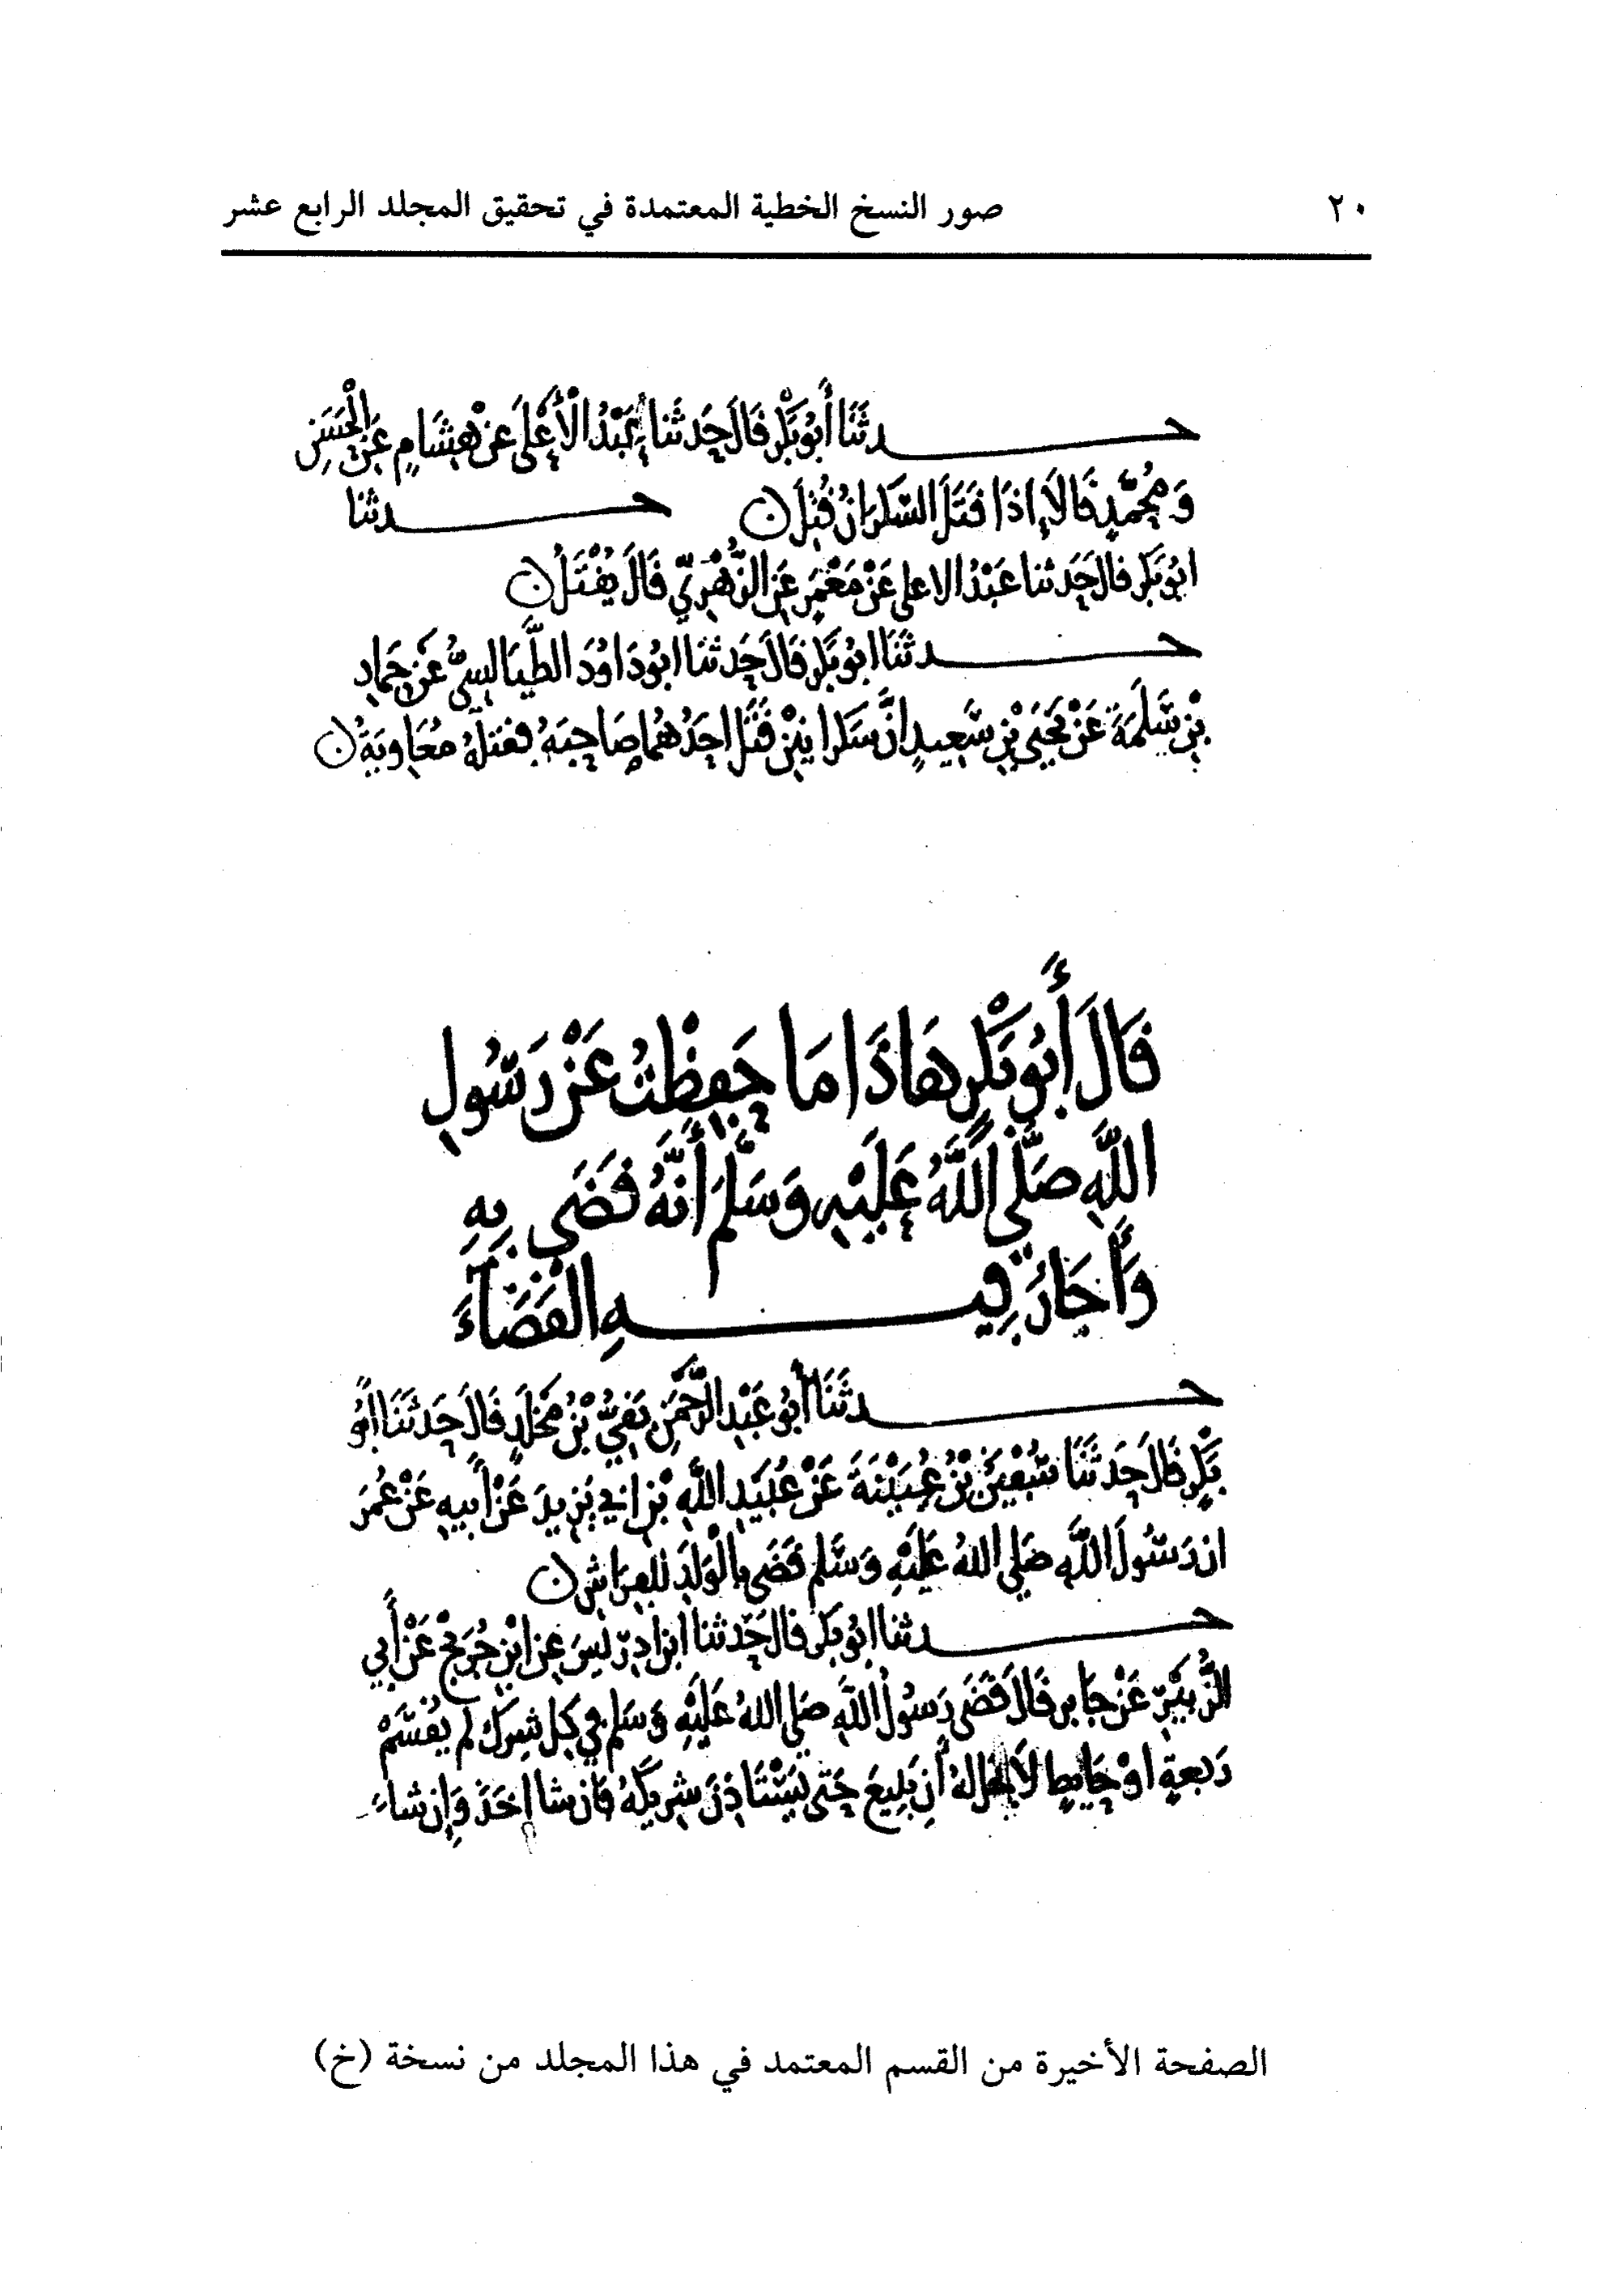 ٢٠ صور النسخ الخطية المعتمدة في تحقيق المجلد الرابع عشر
حدثَنَا أَبُو بَكْرٍ قَالَ حَدثَنا عَبْدُ الْأَعْلَى عَنْ هِشَامٍ عَنِ الْحَسَنِ
وَمُحَمَّدٍ قَالَا إِذَا قَتَلَ السَّكرَانُ قُتِلَ ن حدثنا
ابُو بَكر قال حَدثنا عَبْدُ الاعلى عَنْ مَعْمَرٍ عَنِ الزُّهْرِيّ قَالَ يُقْتَلُ ن
حدثَنَا ابُو بَكْرٍ قَالَ حَدثنا ابُو دَاوُدَ الطَّيَالِسِيُّ عَنْ حَمادِ
بْنِ سَلَمَةَ عَنْ يَحْيَى بْنِ سَعِيدٍ انَّ سَكرا نَيْنِ قَتَلَ احَدُهُمَا صَاحِبَهُ فَقتلَهُ مُعَاوِيَةُ ن
قَالَ أَبُو بَكْرٍ هَاذَا مَا حَفِظْتُ عَنْ رَسُولِ
اللَّهِ صَلَّى اللَّهُ عَلَيْهِ وَسَلَّمَ أَنَّهُ قَضَى بِهِ
وَأَجَازَ فِيهِ الْقَضَاءَ
حدثَنَا أَبُو عَبْدِ الرَّحْمَنِ بَقِيُّ بْنُ مَخْلَدٍ قَالَ حَدثَنَا أَبُو
بَكْرٍ قَالَ حَدثَنَا سُفْيَنُ بْنُ عُيَيْنَةَ عَنْ عُبَيْدِ اللَّهِ بْنِ ابي يَزِيدَ عَنْ أَبِيهِ عَنْ عُمَرَ
ان رَسُولَ اللَّهِ صَلى اللهُ عَلَيْهِ وَسَلم قَضَى بِالْوَلَدِ لِلْفِرَاشِ ن
حدثنا ابُو بَكر قال حَدثنا ابن ادرِيسَ عن ابْنِ جُرَيْجٍ عَنْ أَبِي
الزُّبَيْرِ عَنْ جَابر قَالَ قَضَى رَسُولُ اللَّهِ صَلى اللهُ عَلَيْهِ وَسَلم في كل شِرك لم يُقْسَمْ
رَبعةٍ اوْ حَايِطٍ لَا يحل لهُ أَن يَبِيعَ حَتى يَسْتَاذِنَ شرِيكَهُ فَان شا اخَذَ وَإِن شاءَ
الصفحة الأخيرة من القسم المعتمد في هذا المجلد من نسخة (خ)